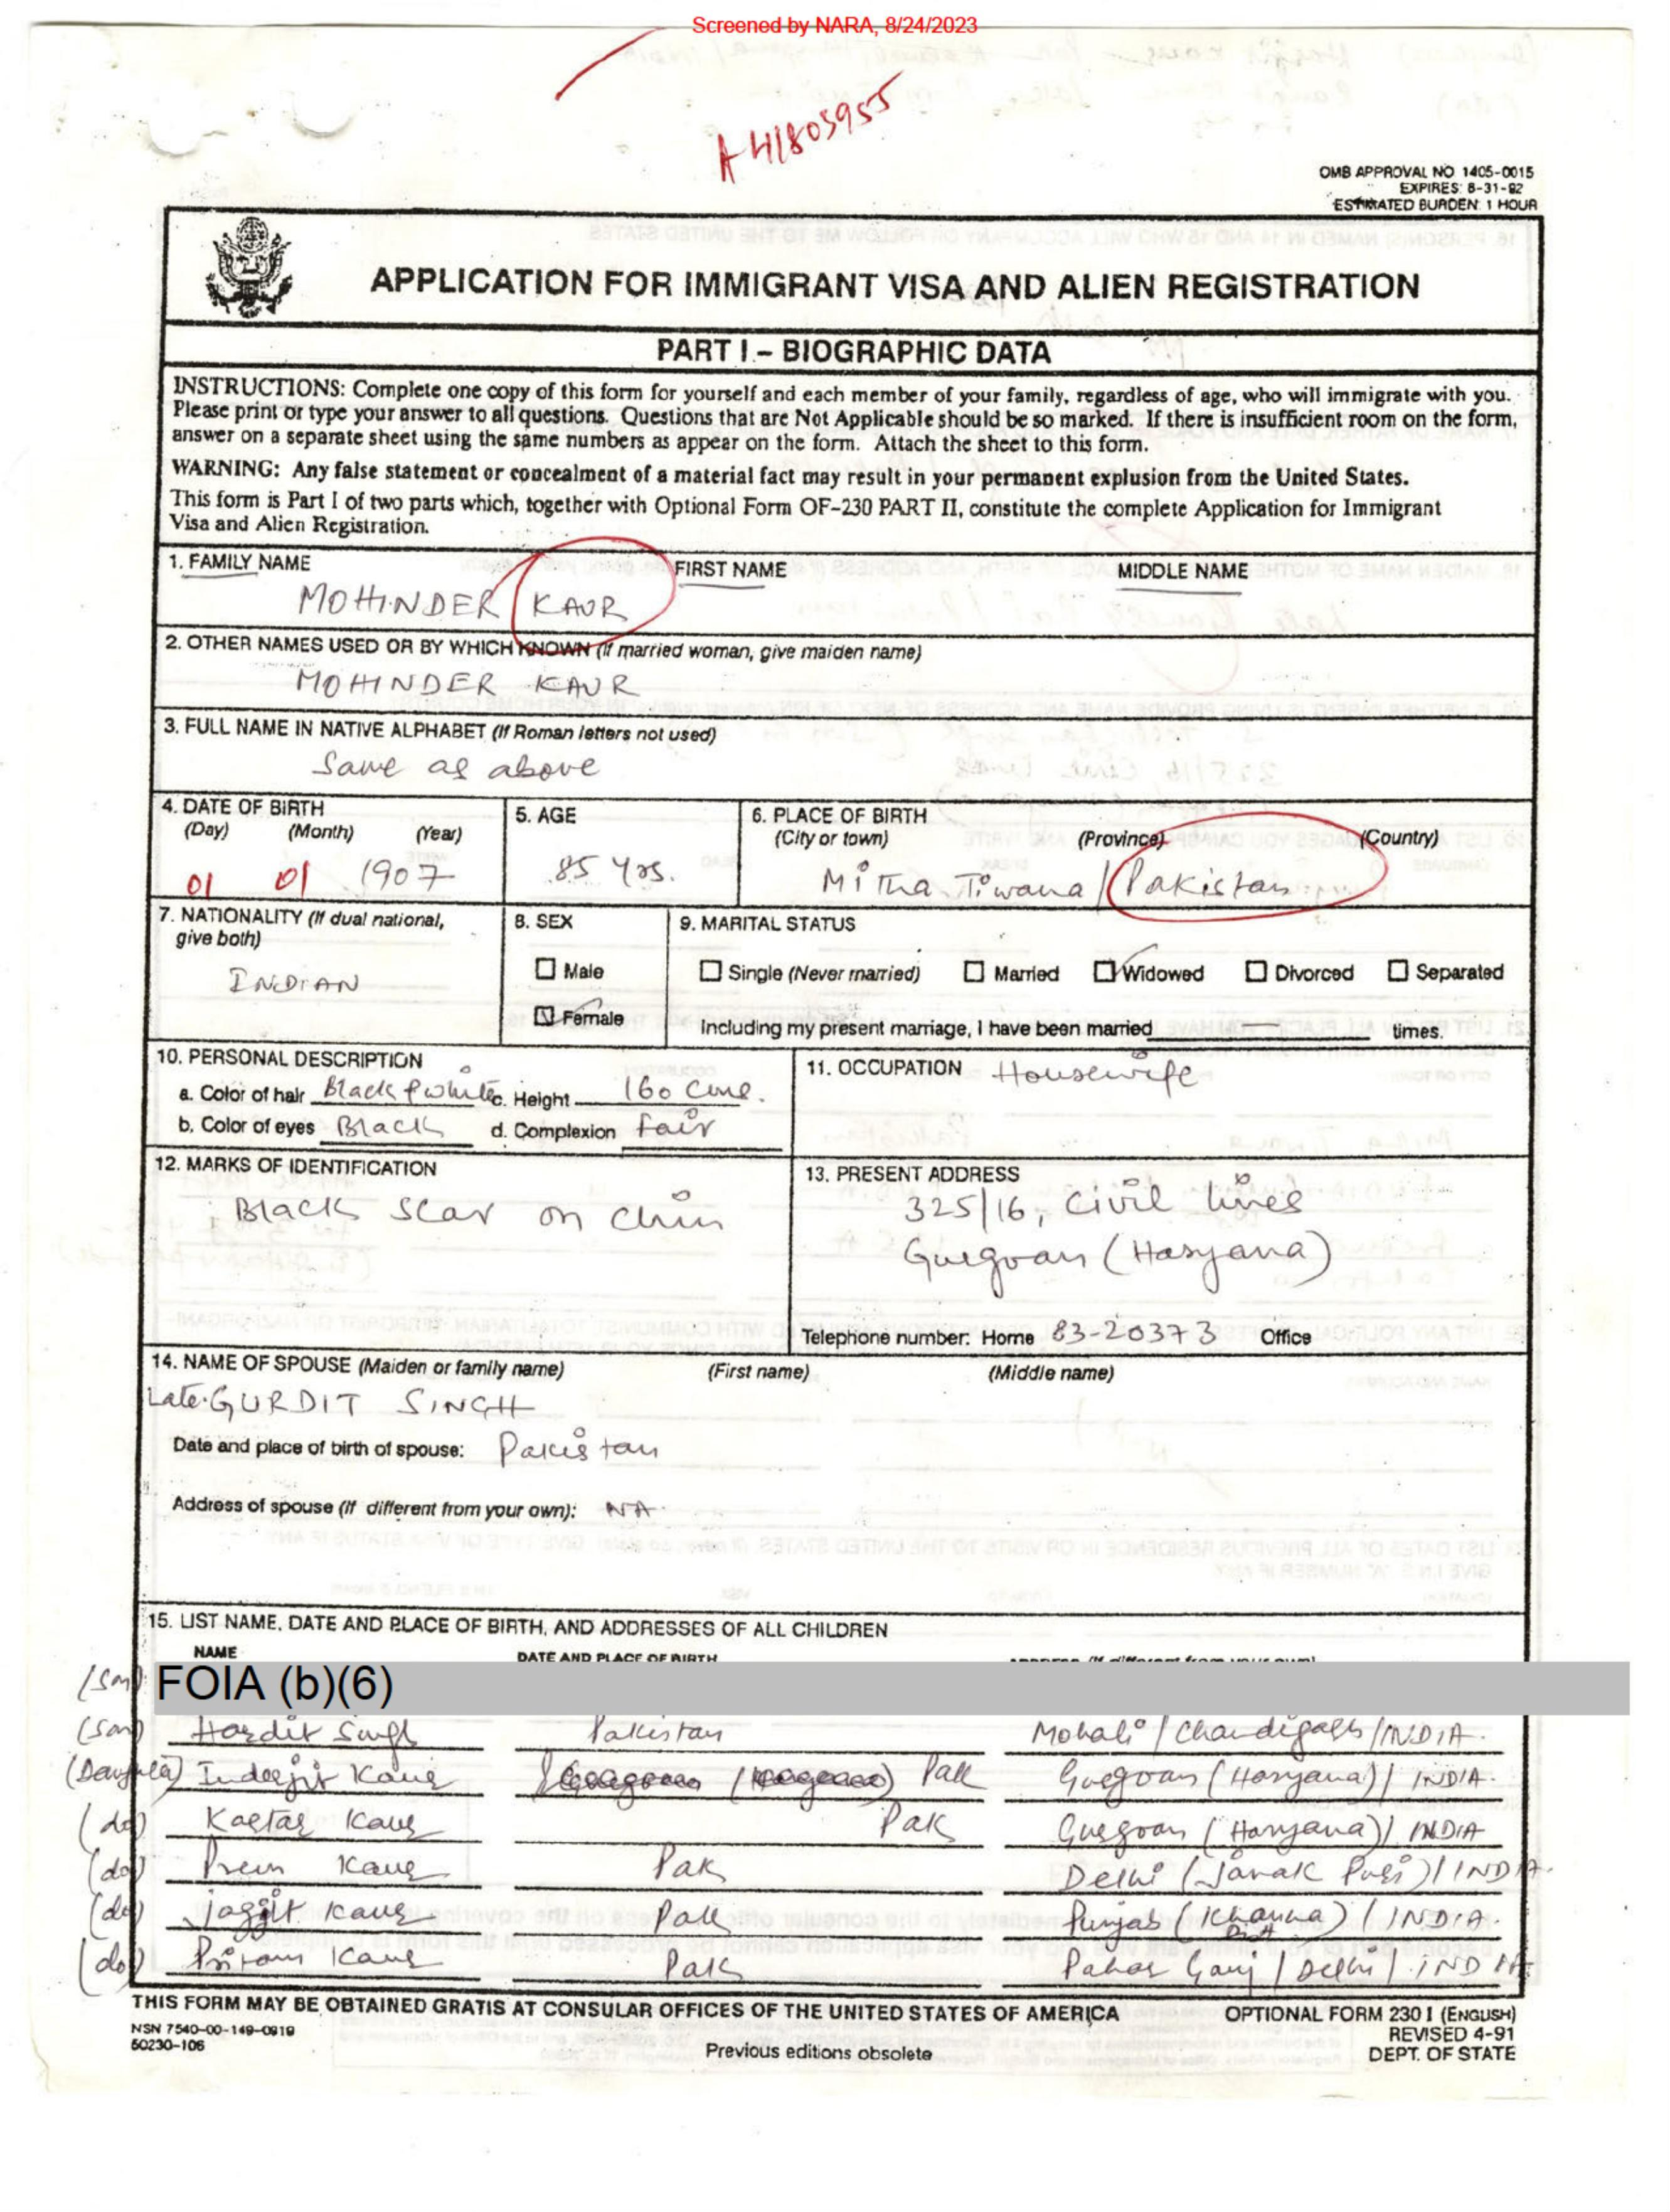 Screened by NARA, 8/24/2023
A41803955
OMB APPROVAL NO 1405-0015
EXPIRES: 8-31-92
ESTIMATED BURDEN: 1 HOUR
APPLICATION FOR IMMIGRANT VISA AND ALIEN REGISTRATION
PART I - BIOGRAPHIC DATA
INSTRUCTIONS: Complete one copy of this form for yourself and each member of your family, regardless of age, who will immigrate with you.
Please print or type your answer to all questions. Questions that are Not Applicable should be so marked. If there is insufficient room on the form,
answer on a separate sheet using the same numbers as appear on the form. Attach the sheet to this form.
WARNING: Any false statement or concealment of a material fact may result in your permanent explusion from the United States.
This form is Part I of two parts which, together with Optional Form OF-230 PART II, constitute the complete Application for Immigrant
Visa and Alien Registration.
1. FAMILY NAME FIRST NAME MIDDLE NAME
MOHINDER KAUR
2. OTHER NAMES USED OR BY WHICH KNOWN (If married woman, give maiden name)
MOHINDER KAUR
3. FULL NAME IN NATIVE ALPHABET (If Roman letters not used)
Same as above
4. DATE OF BIRTH 5. AGE 6. PLACE OF BIRTH
(Day) (Month) (Year) (City or town) (Province) (Country)
01 01 1907 85 yrs. Mitha Tiwana / Pakistan
7. NATIONALITY (If dual national, 8. SEX 9. MARITAL STATUS
give both)
INDIAN Male Single (Never married) Married Widowed Divorced Separated
Female Including my present marriage, I have been married times.
10. PERSONAL DESCRIPTION 11. OCCUPATION Housewife
a. Color of hair Black & white c. Height 160 cms.
b. Color of eyes Black d. Complexion fair
12. MARKS OF IDENTIFICATION 13. PRESENT ADDRESS
Black scar on chin 325/16, Civil lines
Gurgoan (Haryana)
Telephone number: Home 83-20373 Office
14. NAME OF SPOUSE (Maiden or family name) (First name) (Middle name)
Late. GURDIT SINGH
Date and place of birth of spouse: Pakistan
Address of spouse (If different from your own): NA
15. LIST NAME, DATE AND PLACE OF BIRTH, AND ADDRESSES OF ALL CHILDREN
NAME DATE AND PLACE OF BIRTH ADDRESS (If different from your own)
(Son) FOIA (b)(6)
(Son) Hardit Singh Pakistan Mohali / Chandigarh / INDIA.
(Daughter) Inderjit Kaur Pak Gurgoan (Haryana) / INDIA.
(do) Kartar Kaur Pak Gurgoan (Haryana) / INDIA
(do) Prem Kaur Pak Delhi (Janak Puri) / INDIA.
(do) Jagjit Kaur Pak Punjab (Khanna) / INDIA.
Distt
(do) Pritam Kaur Pak Pahar Ganj / Delhi / INDIA
THIS FORM MAY BE OBTAINED GRATIS AT CONSULAR OFFICES OF THE UNITED STATES OF AMERICA OPTIONAL FORM 230 I (ENGLISH)
NSN 7540-00-149-0919 REVISED 4-91
50230-106 Previous editions obsolete DEPT. OF STATE